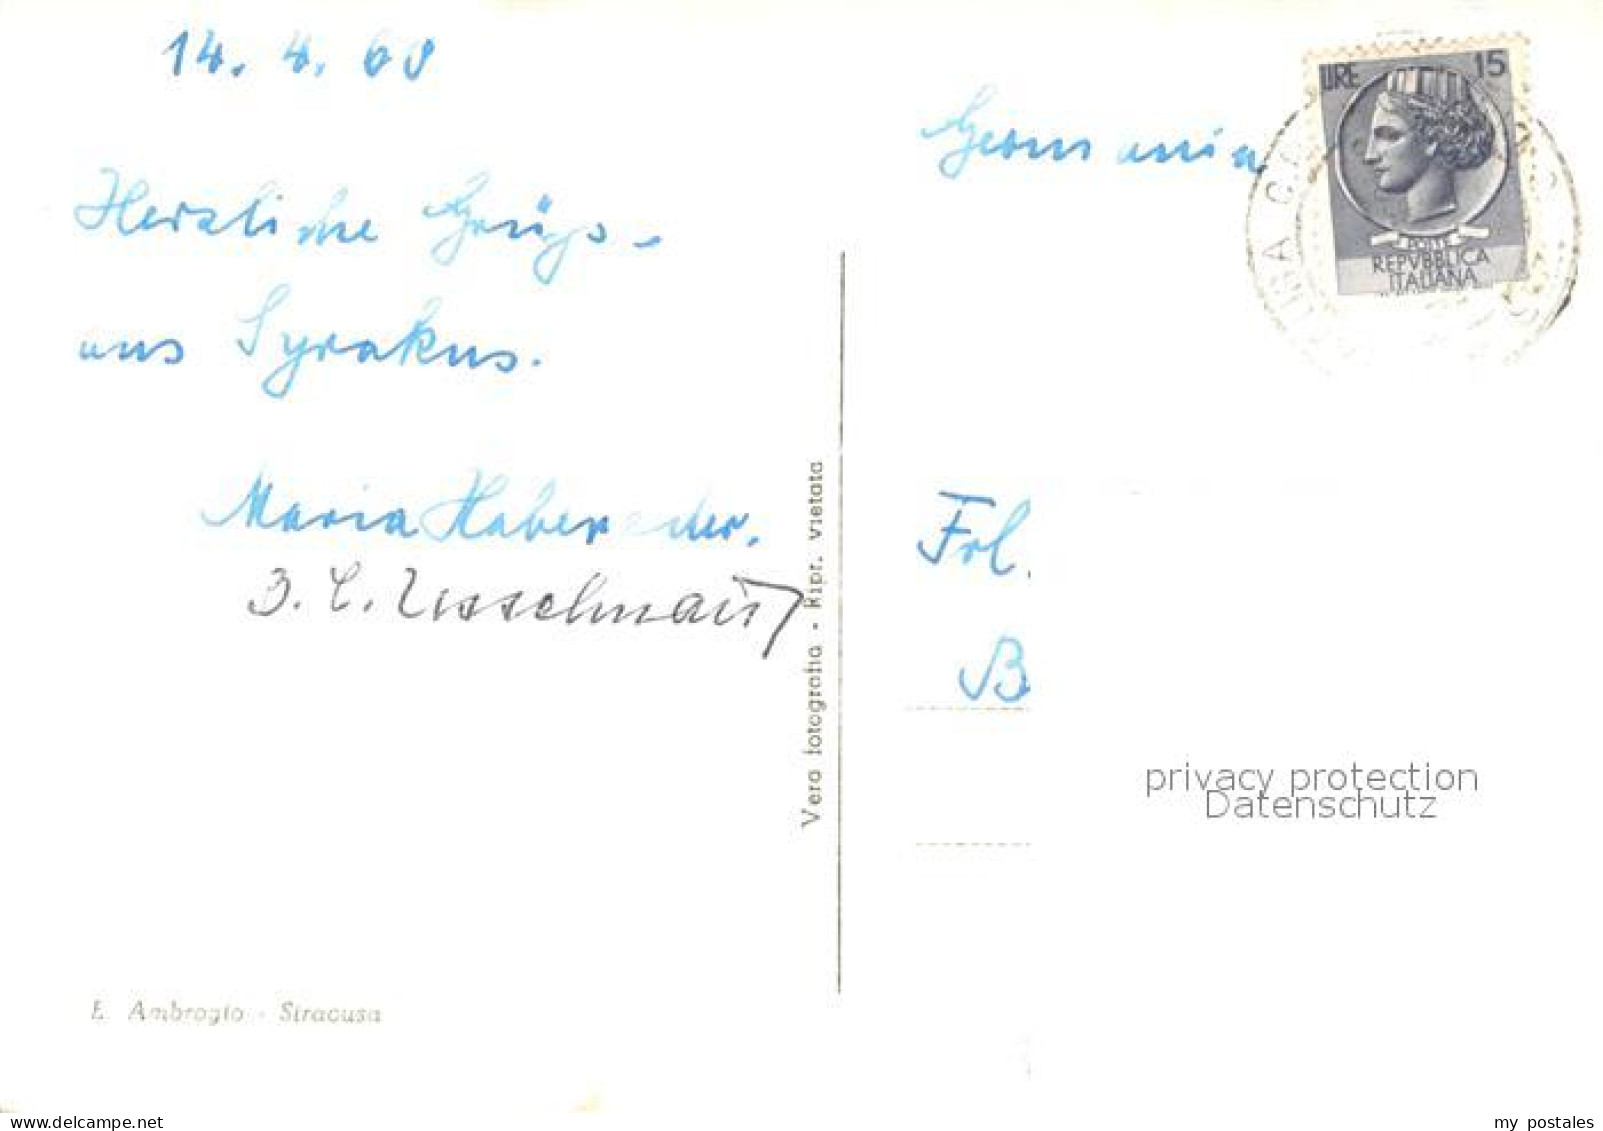 14. 4. 60
Germania
LIRE 15
POSTE
REPVBBLICA
ITALIANA
Herzliche Grüße
aus Syrakus.
Maria Habereder.
Frl.
B
Vera fotografia - Ripr. vietata
privacy protection
Datenschutz
E. Ambrogio - Siracusa
www.delcampe.net
my postales